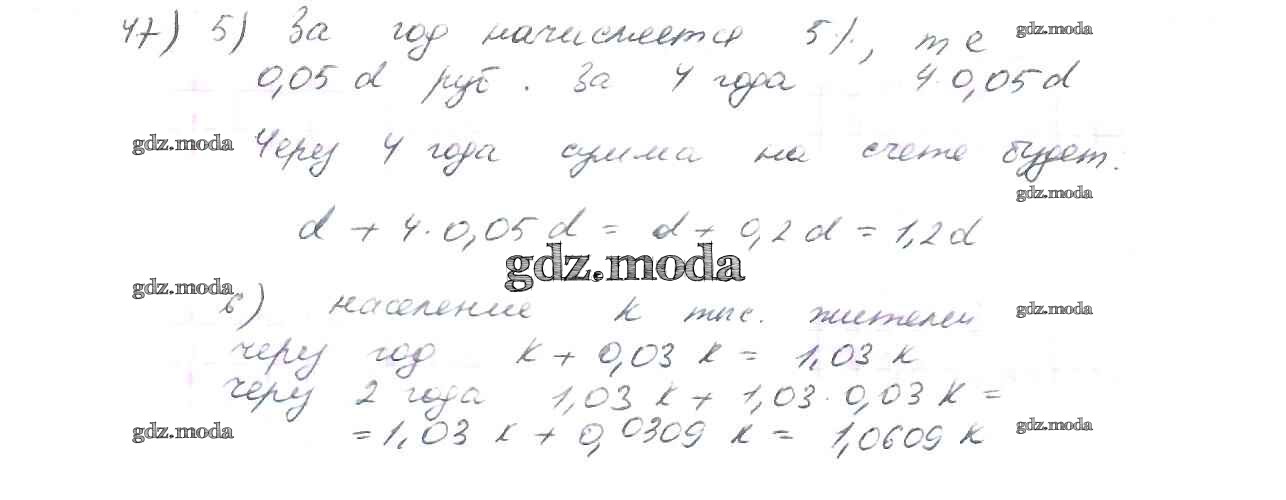 47) 5) За год начисляется 5%, т е gdz.moda
0,05 d руб. За 4 года 4·0,05 d
gdz.moda Через 4 года сумма на счете будет:
gdz.moda
d + 4·0,05 d = d + 0,2 d = 1,2 d
gdz.moda
gdz.moda
6) население k тыс. жителей gdz.moda
через год k + 0,03 k = 1,03 k
через 2 года 1,03 k + 1,03·0,03 k =
gdz.moda = 1,03 k + 0,0309 k = 1,0609 k gdz.moda